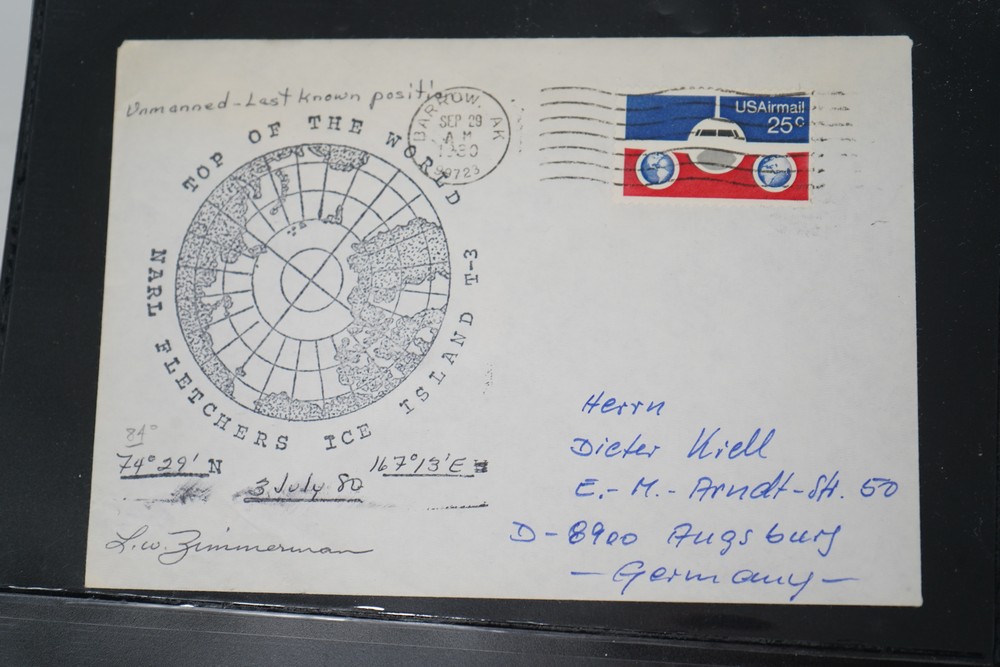 Unmanned - Last known positi
BARROW, AK
SEP 29
A.M
1980
99723
USAirmail
25c
TOP OF THE WORLD
NARL FLETCHERS ICE ISLAND T-3
84°
74° 29' N
167° 13' E
3 July 80
L.W. Zimmerman
Herrn
Dieter Kiell
E.-M.-Arndt-Str. 50
D-8900 Augsburg
- Germany -